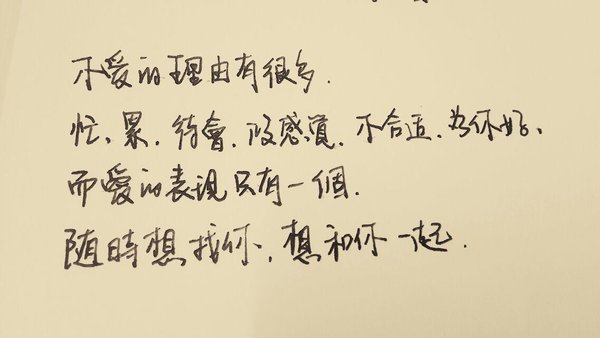 不爱的理由有很多.
忙、累、待會、没感覺、不合适、为你好、
而愛的表現只有一個.
随時想找你、想和你一起.